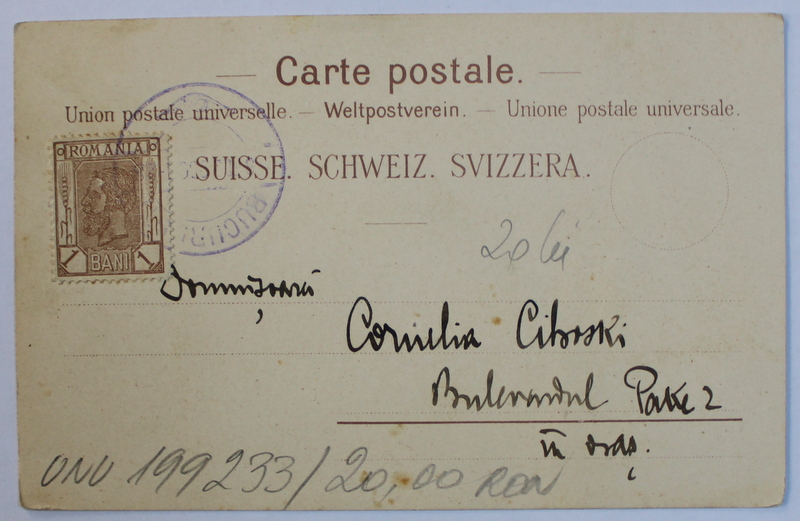 Carte postale.
Union postale universelle. — Weltpostverein. — Unione postale universale.
SUISSE. SCHWEIZ. SVIZZERA.
ROMANIA
1 BANI 1
BUCUR
20 lei
Domnișoarei
Cornelia
Bulevardul Pake 2
în oraș.
199233/20,00 RON